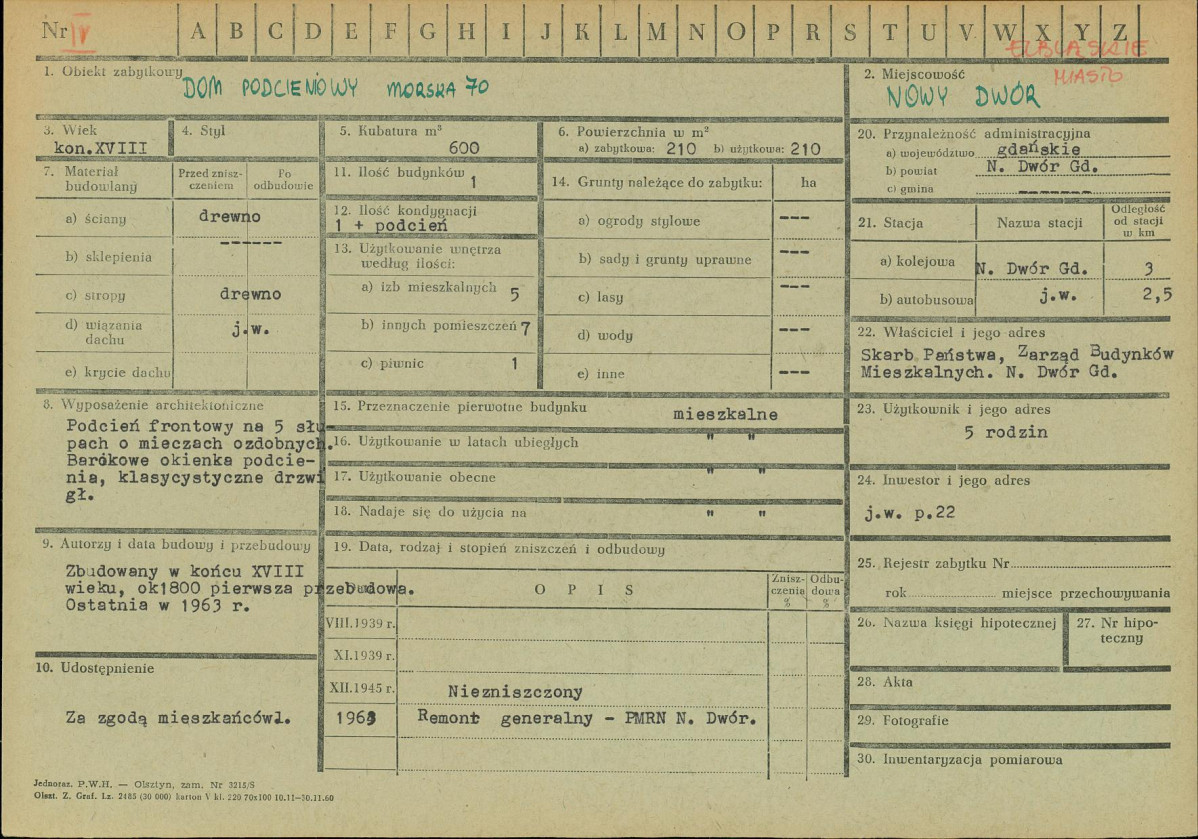 Nr IV A B C D E F G H I J K L M N O P R S T U V W X Y Z
ELBLĄSKIE
MIASTO
1. Obiekt zabytkowy
DOM PODCIENIOWY MORSKA 70
2. Miejscowość
NOWY DWÓR
3. Wiek
kon.XVIII
4. Styl
5. Kubatura m³
600
6. Powierzchnia w m²
a) zabytkowa: 210 b) użytkowa: 210
20. Przynależność administracyjna
a) województwo gdańskie
b) powiat N. Dwór Gd.
c) gmina -------
7. Materiał budowlany
Przed zniszczeniem
Po odbudowie
a) ściany drewno
------
b) sklepienia
c) stropy drewno
d) wiązania dachu j.w.
e) krycie dachu
11. Ilość budynków 1
12. Ilość kondygnacji
1 + podcień
13. Użytkowanie wnętrza
według ilości:
a) izb mieszkalnych 5
b) innych pomieszczeń 7
c) piwnic 1
14. Grunty należące do zabytku: ha
a) ogrody stylowe ---
b) sady i grunty uprawne ---
c) lasy ---
d) wody ---
e) inne ---
21. Stacja Nazwa stacji Odległość od stacji w km
a) kolejowa N. Dwór Gd. 3
b) autobusowa j.w. 2,5
22. Właściciel i jego adres
Skarb Państwa, Zarząd Budynków
Mieszkalnych. N. Dwór Gd.
8. Wyposażenie architektoniczne
Podcień frontowy na 5 słu-
pach o mieczach ozdobnych.
Barokowe okienka podcie-
nia, klasycystyczne drzwi
gł.
15. Przeznaczenie pierwotne budynku mieszkalne
16. Użytkowanie w latach ubiegłych " "
17. Użytkowanie obecne " "
18. Nadaje się do użycia na " "
23. Użytkownik i jego adres
5 rodzin
24. Inwestor i jego adres
j.w. p.22
9. Autorzy i data budowy i przebudowy
Zbudowany w końcu XVIII
wieku, ok1800 pierwsza przebudowa.
Ostatnia w 1963 r.
19. Data, rodzaj i stopień zniszczeń i odbudowy
Data OPIS Zniszczenia % Odbudowa %
VIII.1939 r.
XI.1939 r.
XII.1945 r. Niezniszczony
1963 Remont generalny - PMRN N. Dwór.
25. Rejestr zabytku Nr
rok miejsce przechowywania
26. Nazwa księgi hipotecznej
27. Nr hipo-
teczny
10. Udostępnienie
Za zgodą mieszkańców.
28. Akta
29. Fotografie
30. Inwentaryzacja pomiarowa
Jednoraz. P.W.H. — Olsztyn, zam. Nr 3215/S
Olszt. Z. Graf. Lz. 2485 (30 000) karton V kl. 220 70x100 10.11—30.11.60